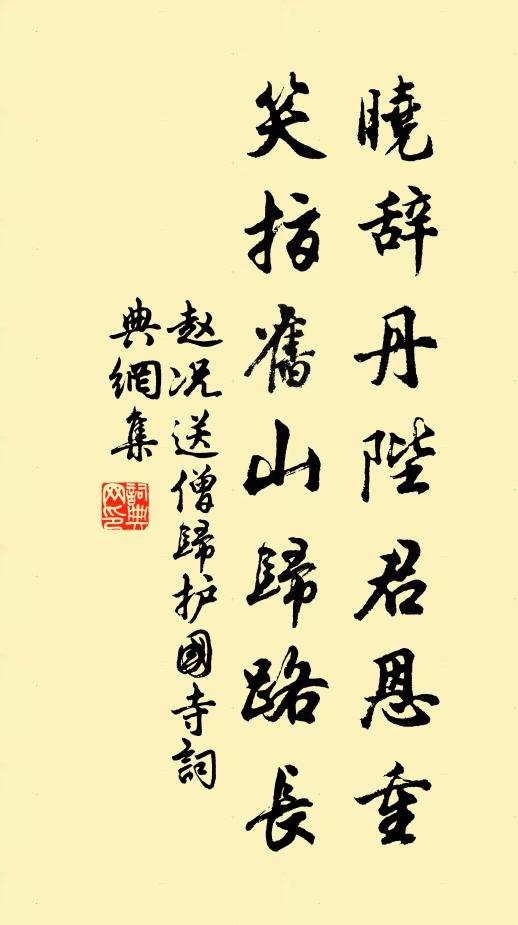 曉辞丹陛君恩重
笑指舊山歸路長
赵况送僧歸护國寺詞
典網集
詞典
网印